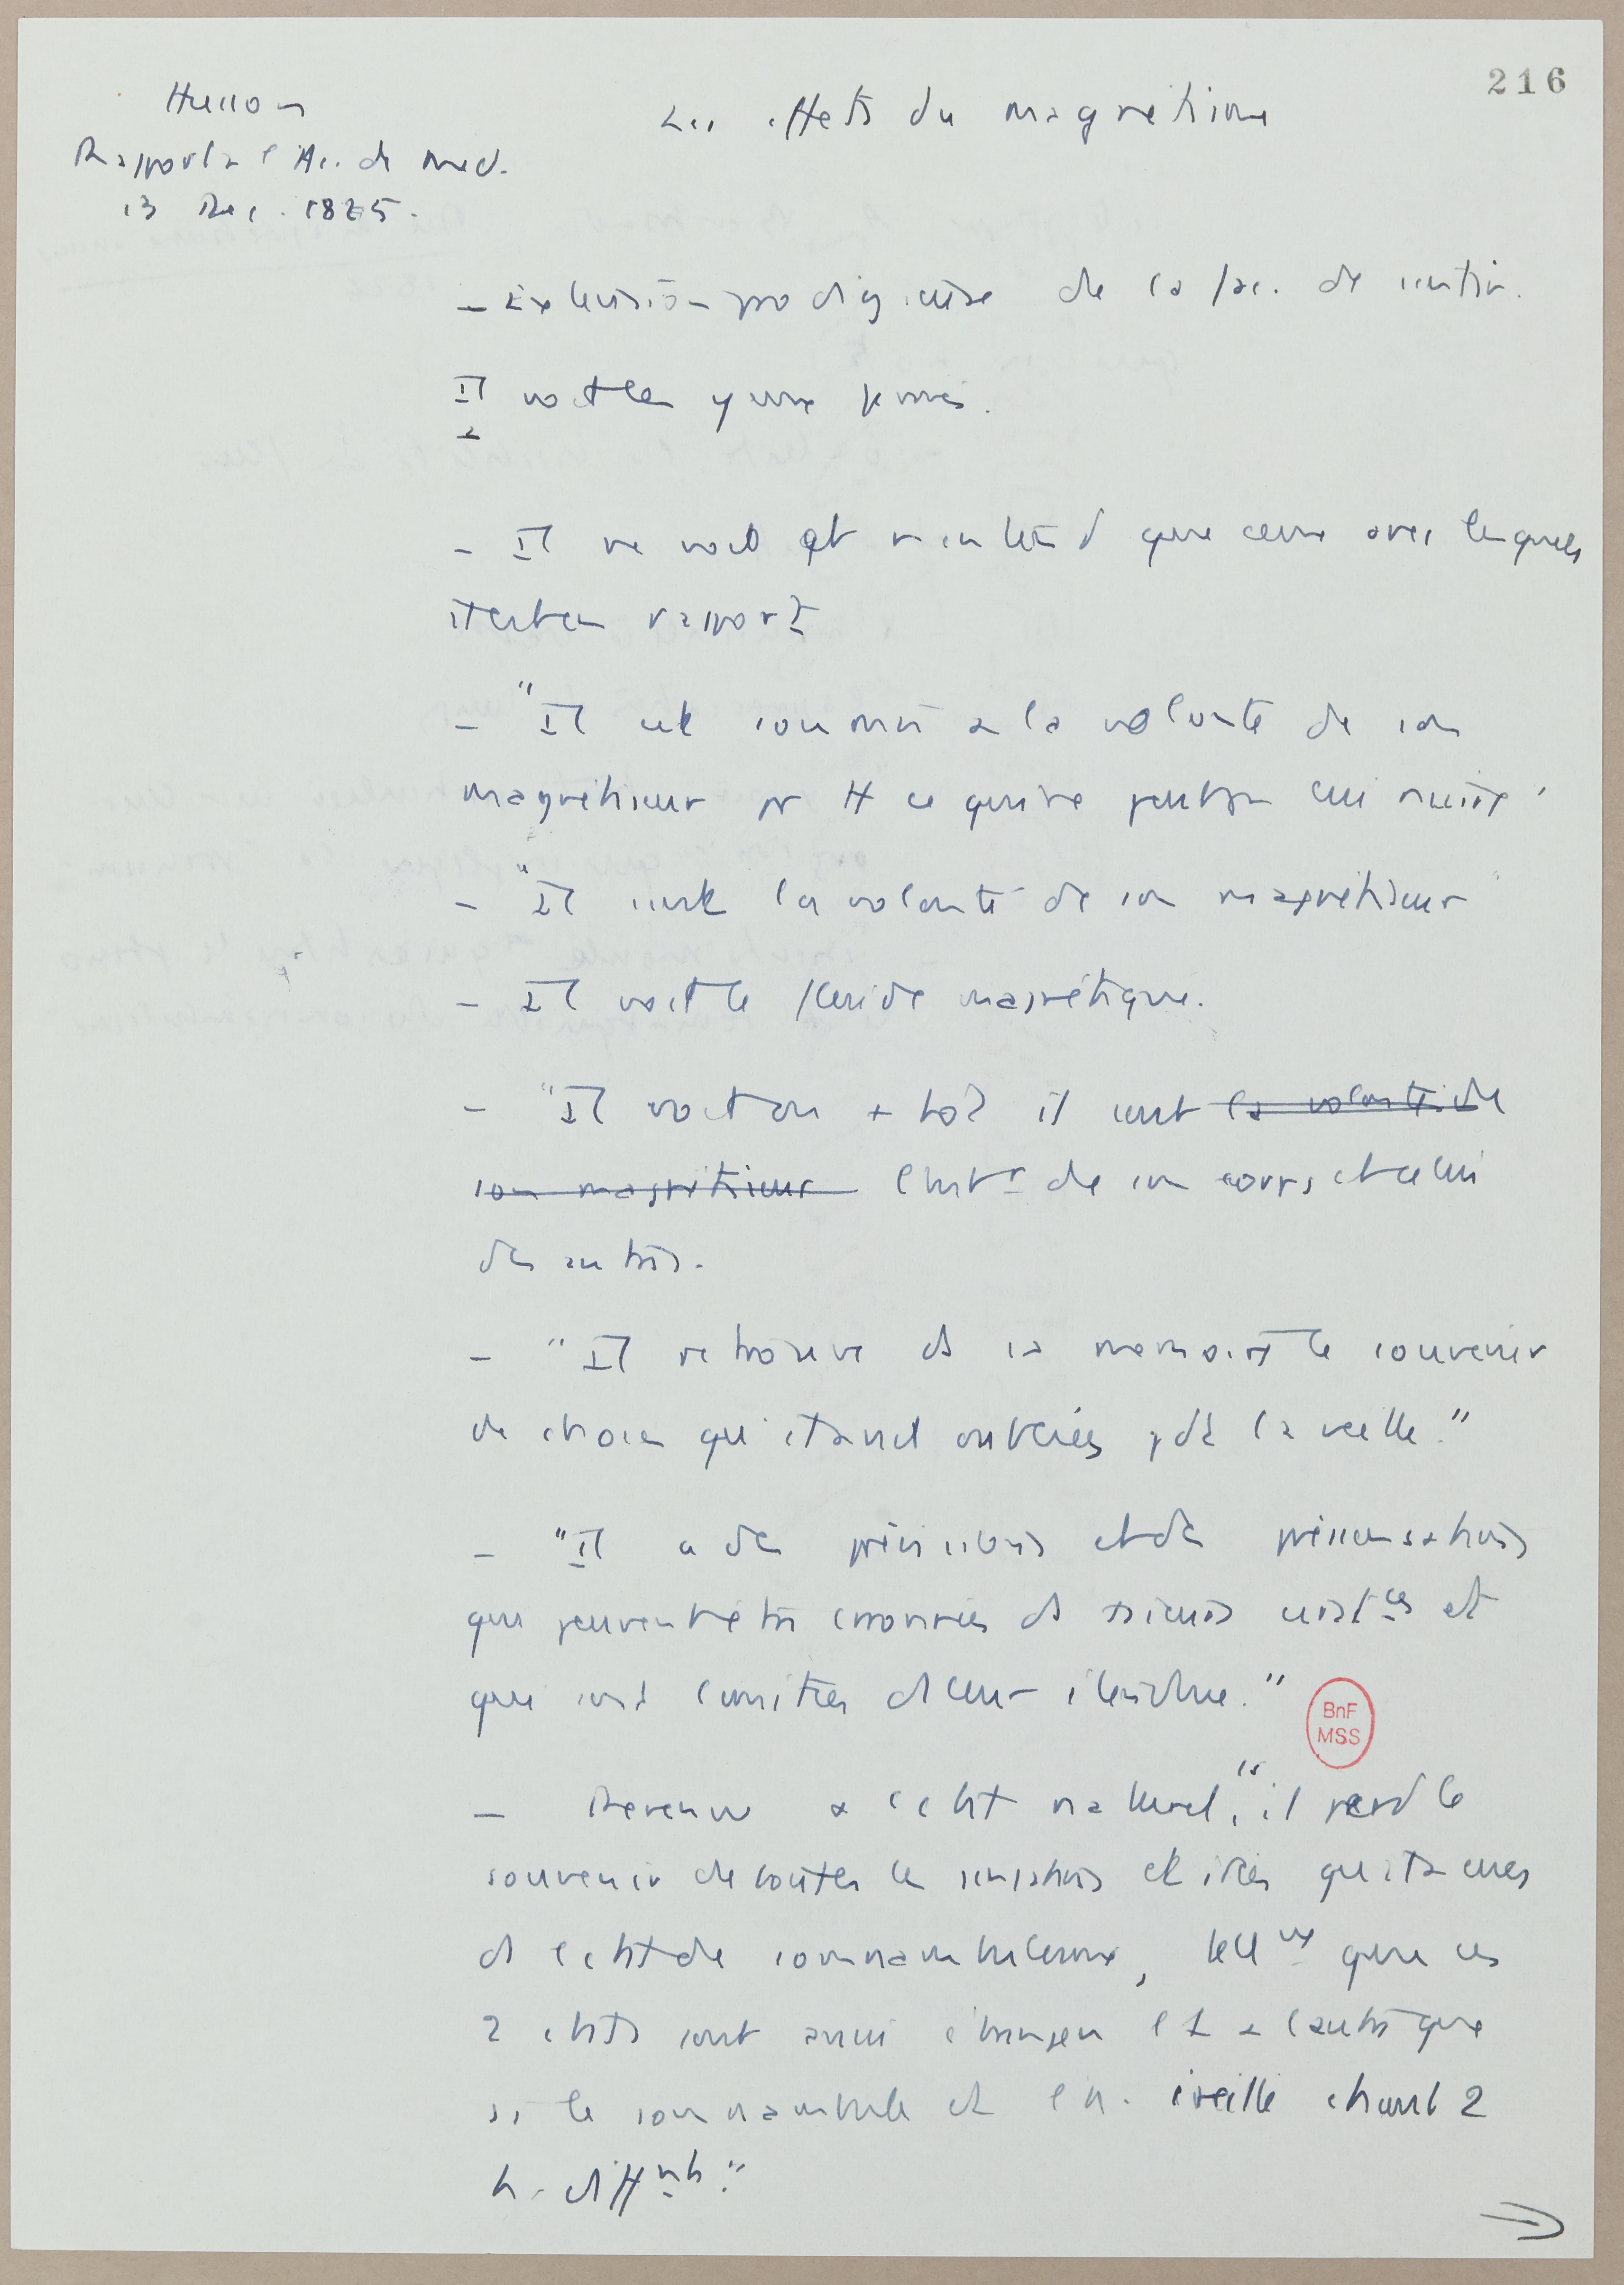 216
Husson
Rapport à l'Ac. de Med.
13 Dec. 1825.
Les effets du magnétisme
- Extension prodigieuse de la fac. de sentir.
Il voit les yeux fermés.
- Il ne voit et n'entend que ceux avec lesquels
il est en rapport
- "Il est soumis à la volonté de son
magnétiseur pr tt ce qui ne peut pas lui nuire"
- "Il sent la volonté de son magnétiseur"
- Il voit le fluide magnétique.
- "Il voit ou + tôt il sent la volonté de
son magnétiseur l'intr de son corps et celui
des autres.
- "Il retrouve ds sa mémoire le souvenir
de choses qu'il avait oubliées pdt la veille."
- "Il a des prévisions et des présensations
qui peuvent être erronées ds plusieurs cirstces et
qui sont limitées ds leur étendue."
BnF
MSS
- Revenu à l'état naturel, "il perd le
souvenir de toutes les sensations et idées qu'il a eues
ds l'état de somnambulisme, tellmt que ces
2 états sont aussi étrangers l'1 à l'autre que
si le somnambule et l'h. éveillé étaient 2
h. diffrents."